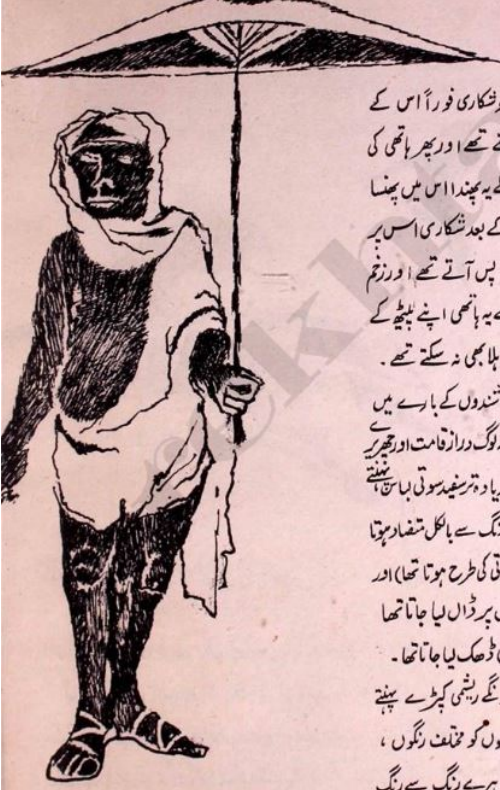 شکاری فوراً اس کے
تھے اور پھر ہاتھی کی
یہ پھندا اس میں پھنسا
کے بعد شکاری اس پر
پس آتے تھے اور زخم
یہ ہاتھی اپنے پٹھے کے
ہلا بھی نہ سکتے تھے۔
تندوں کے بارے میں
لوگ دراز قامت اور چھریرے
یادہ تر سفید سوتی لباس پہنتے
نگ سے بالکل متضاد ہوتا
تی کی طرح ہوتا تھا) اور
پر ڈال لیا جاتا تھا
ڈھک لیا جاتا تھا۔
نگے ریشمی کپڑے پہنتے
وں کو مختلف رنگوں،
ہرے رنگ سے رنگ